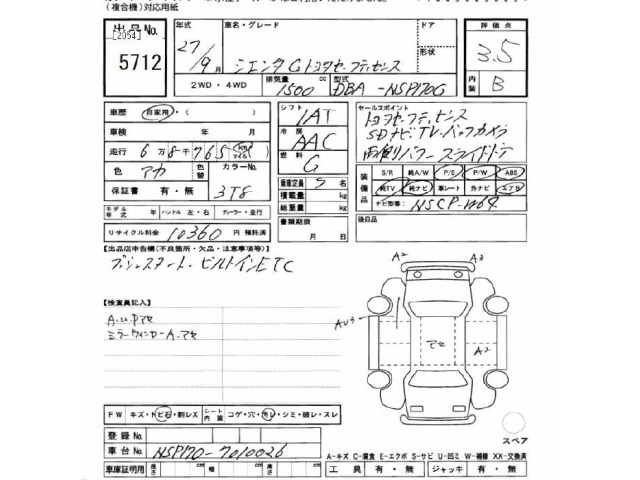 (複合機)対応用紙
出品No.
[2054]
5712
年式
27/9月
車名・グレード
シエンタGトヨタセーフティセンス
ドア
形状
評価点
3.5
内装
B
2WD・4WD
排気量
1500
cc
型式
DBA-NSP170G
車歴
自家用・( )
車検 年 月
走行 6万8千765 km マイル
色 アカ
色替
カラーNo.
3T8
保証書 有・無
モデル年式 年
ハンドル 左・右
ディーラー・並行
リサイクル料金 10360 円 預託済
シフト
IAT
冷房
AAC
燃料
G
乗車定員 5 名
積載量 kg
総重量 kg
書類期限
月 日
セールスポイント
トヨタセーフティセンス
SDナビTV バックカメラ
両側パワースライドドア
装備品
S/R 純A/W P/S P/W ABS
純TV 純ナビ 革シート 外ナビ エアB
ナビ型番: NSCP-W64
後日品
【出品店申告欄(不良箇所・欠品・注意事項等)】
プッシュスタート・ビルトインETC
【検査員記入】
A.U.Pアセ
ミラーウィンカーA.アセ
A2
A3
AU3
アセ
A2
FW
キズ・トビ石・割レX
シート内装
コゲ・穴・汚レ・シミ・破レ・スレ
登録No.
車台No. NSP170-7010026
車庫証明用
長さ cm
幅 cm
高さ cm
スペア
A-キズ C-腐食 E-エクボ S-サビ U-凹ミ W-補修 XX-交換済
工具 有・無
ジャッキ 有・無